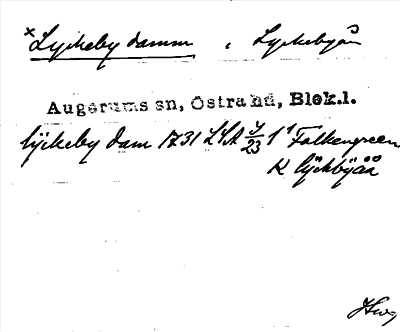 ×Lyckeby damm, Lyckebyån
Augerums sn, Östra hd, Blek.l.
Lyckeby dam 1731 LSA J/23 1¹ Falkengreen
K Lyckbyåå